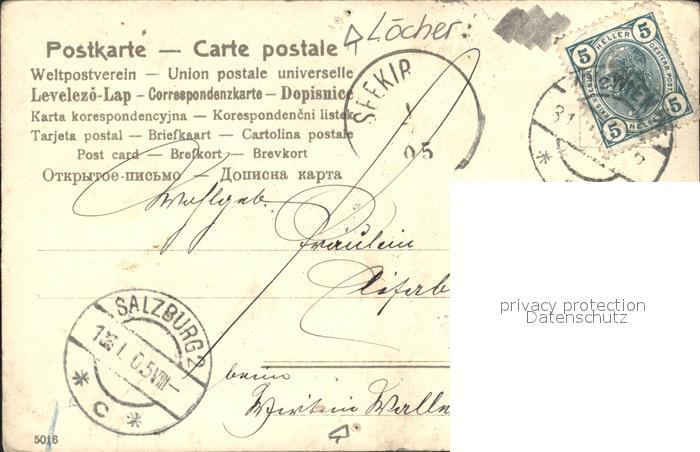 Löcher:
Postkarte — Carte postale
Weltpostverein — Union postale universelle
Levelező-Lap – Correspondenzkarte – Dopisnice
Karta korespondencyjna — Korespondenční listek
Tarjeta postal — Briefkaart — Cartolina postale
Post card — Brefkort — Brevkort
Открытое-письмо — Дописна карта
5 HELLER 5
5 HELLER 5
SEEKIR
1
05
31
Wohlgeb.
Fräulein
privacy protection
Datenschutz
SALZBURG 2
13. I. 05 VIII–
* C *
beim
Wirt in Walle
5016